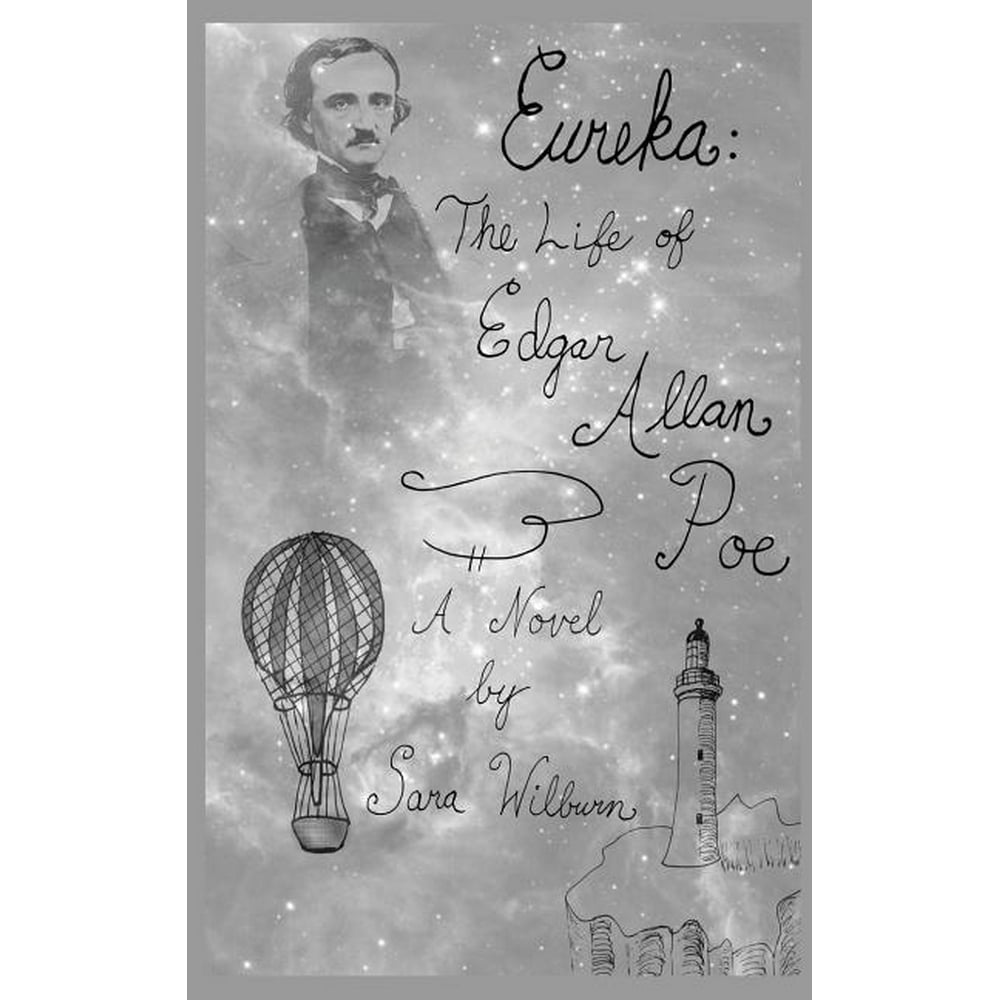 Eureka:
The Life of
Edgar
Allan
Poe
A Novel
by
Sara Wilburn